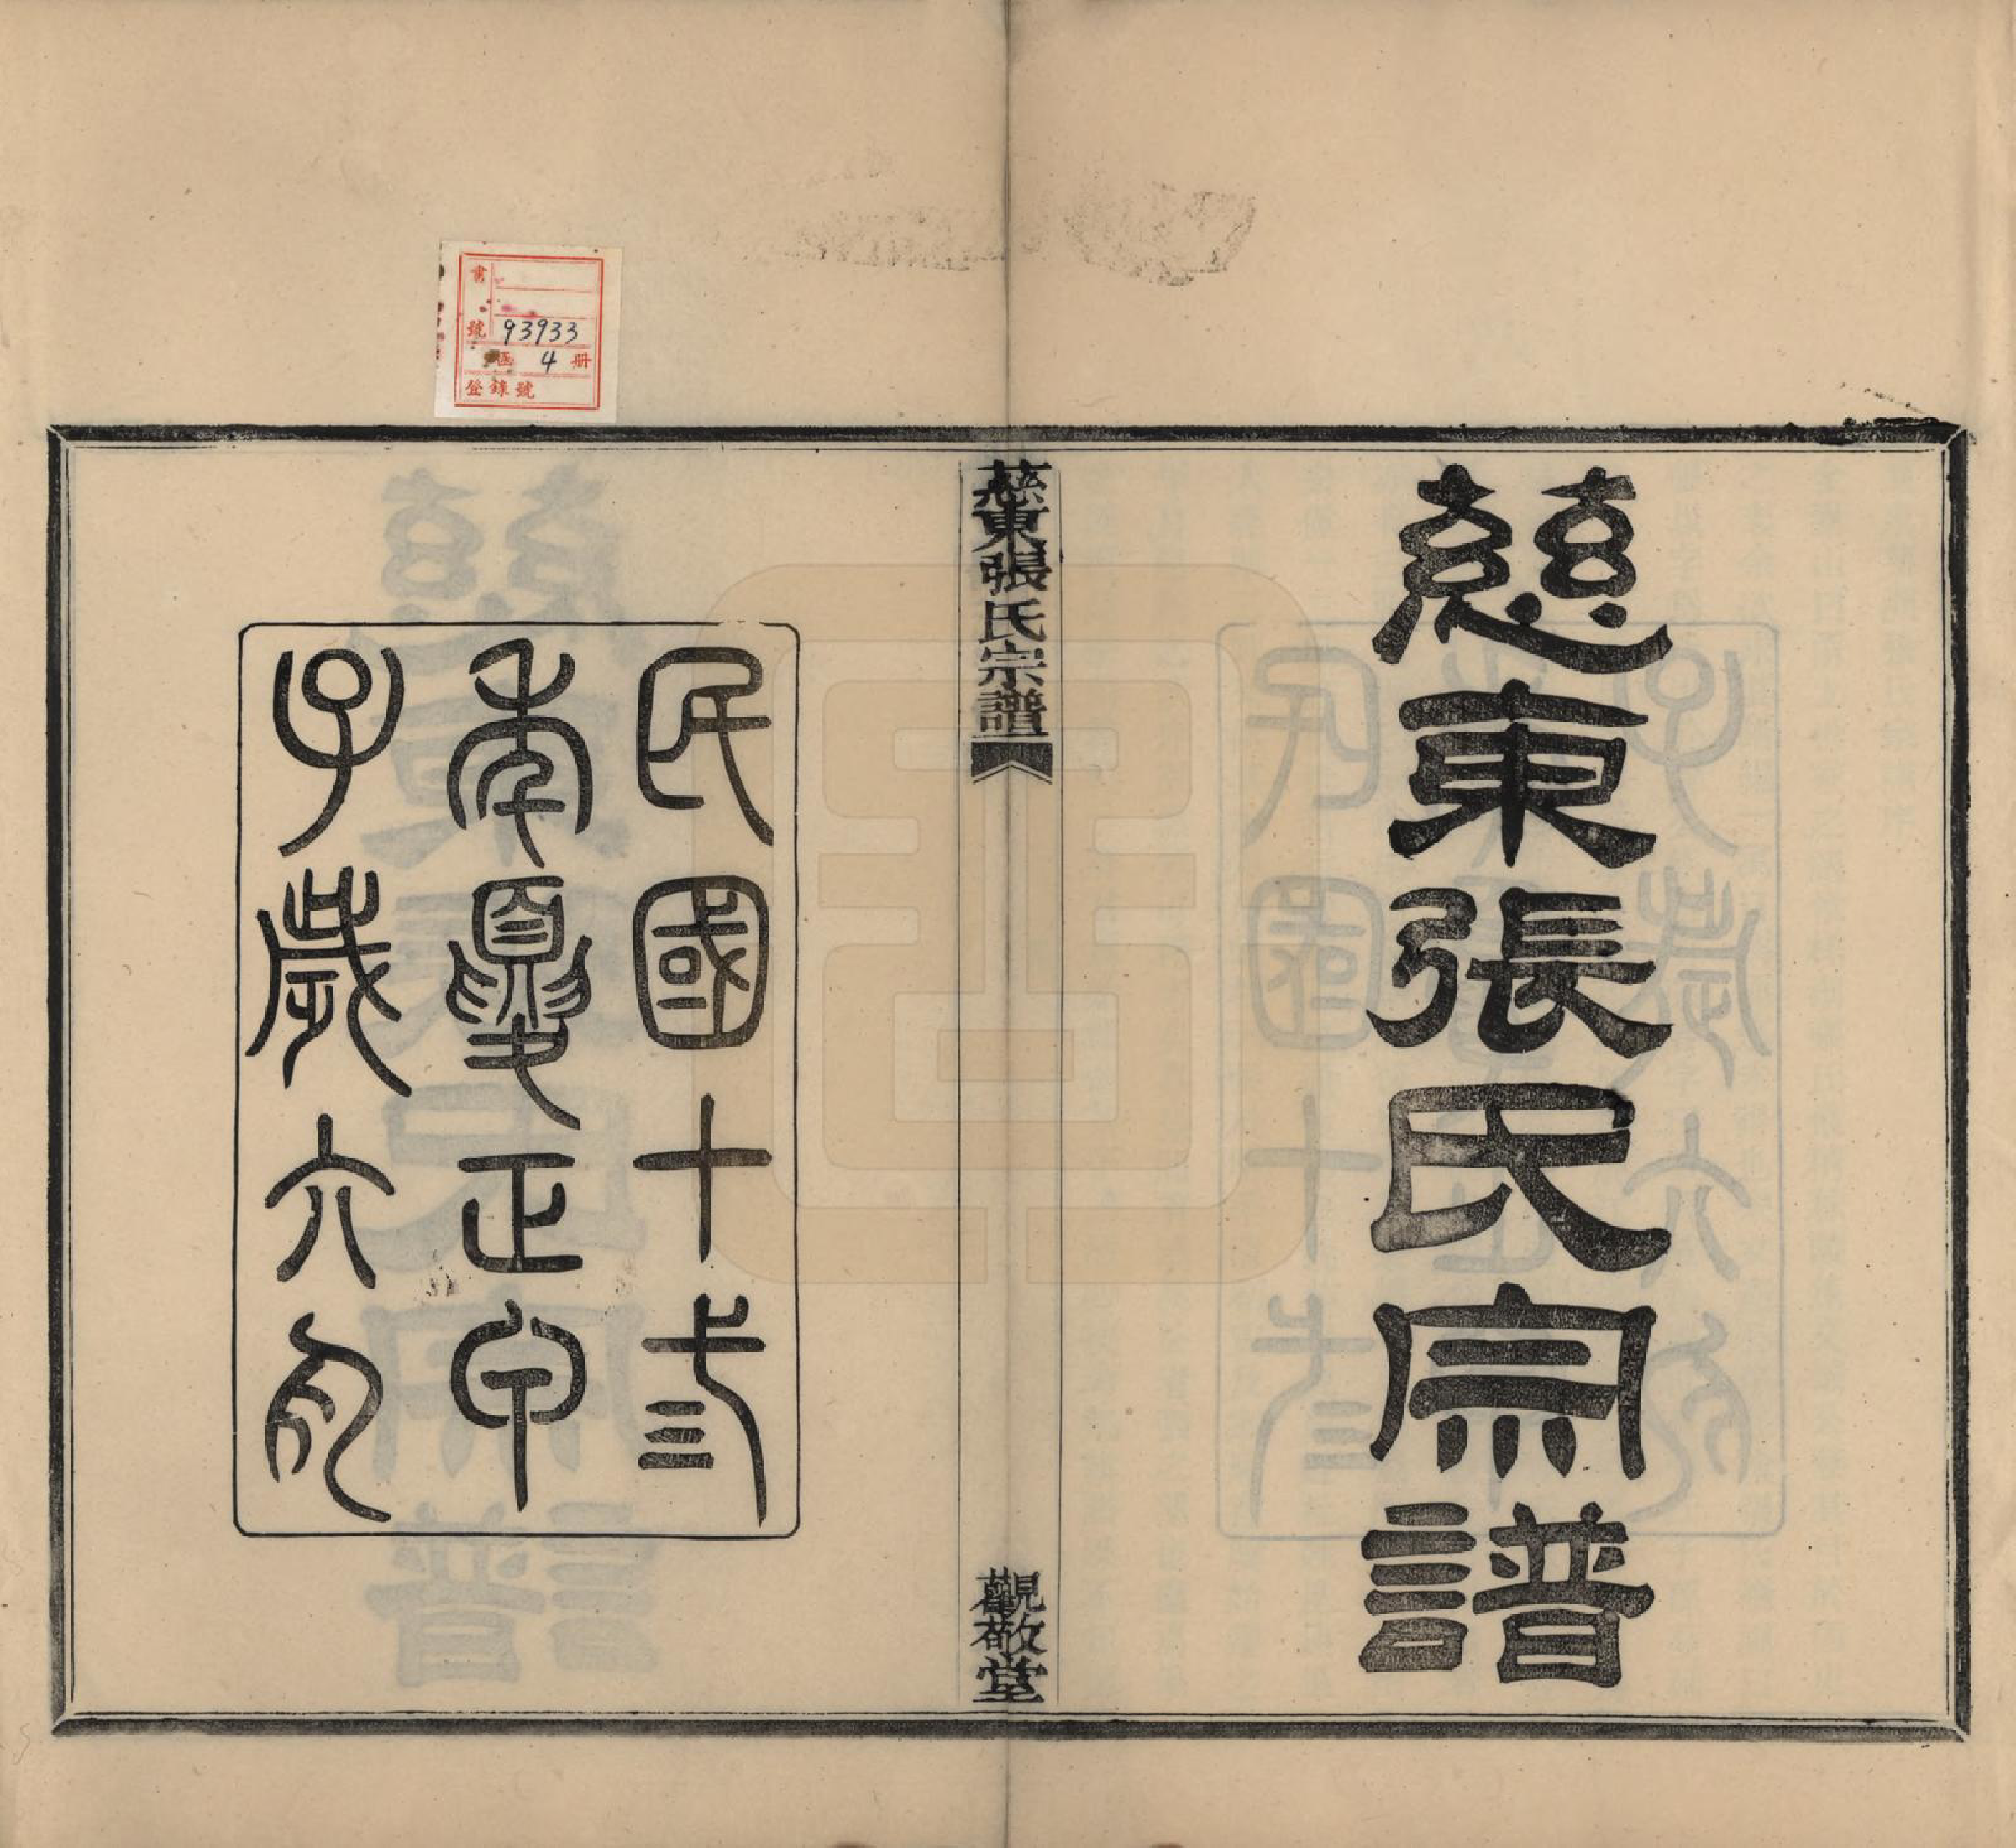 慈東張氏宗譜
慈東張氏宗譜
觀敬堂
民國十弎
年夏正甲
子歲六月
書
號 93933
函 4 册
登錄號